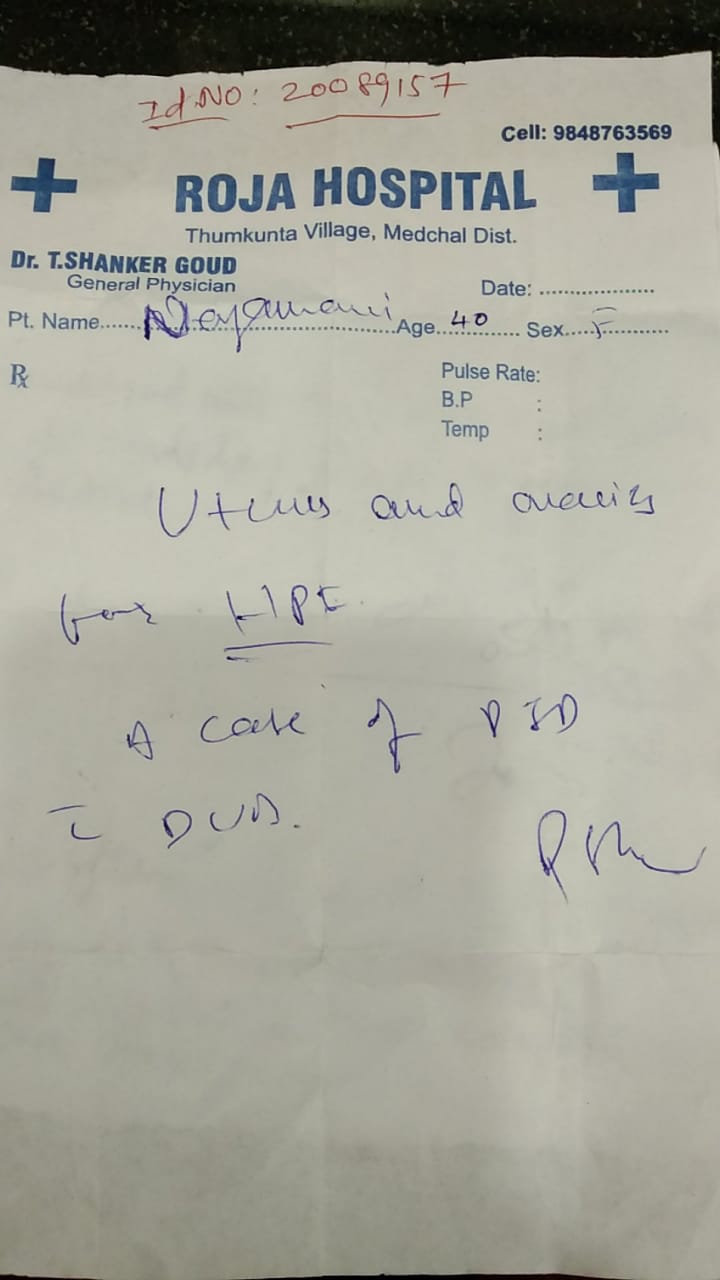 Id.NO: 20089157
Cell: 9848763569
ROJA HOSPITAL
Thumkunta Village, Medchal Dist.
Dr. T.SHANKER GOUD
General Physician
Date: ....................
Pt. Name.................... Age. 40 Sex. F
Rx
Pulse Rate:
B.P :
Temp :
Uterus and ovaries
for HPE
A case of PID
c̄ DUB.